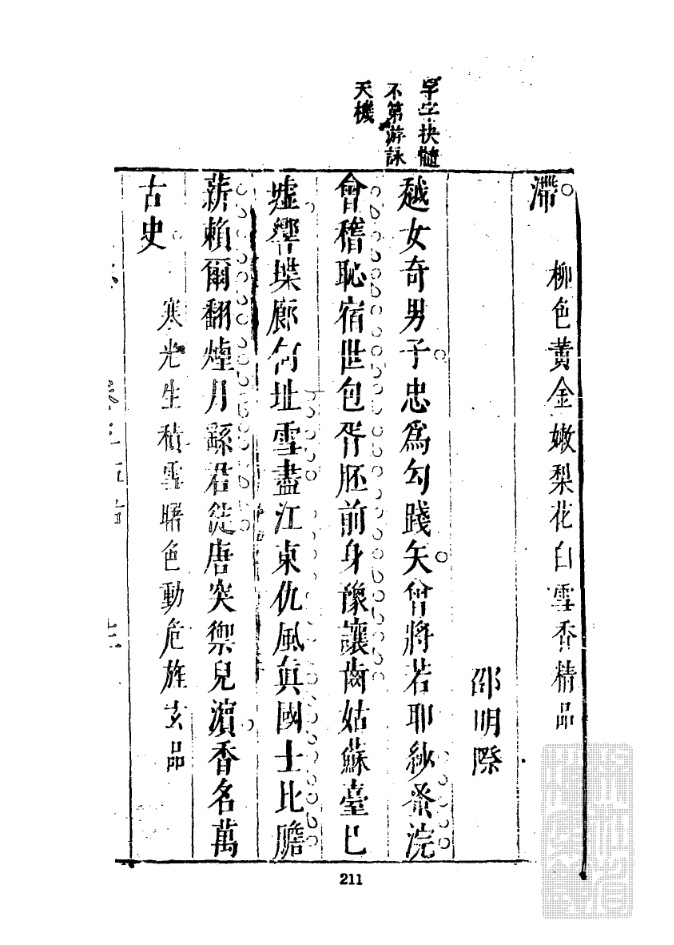 字字抉髓
不第游詠
天機
滯 柳色黃金嫩梨花白雪香精品
邵明際
越女奇男子忠爲勾踐矢曾將若耶紗蚤浣
會稽恥宿世包胥胚前身豫讓齒姑蘇臺已
墟響堞廊何址雪盡江東仇風真國士比膽
薪賴爾翻煙月繇君從唐突禦兒濱香名萬
古史 寒光生積雪曙色動危旌玄品
211